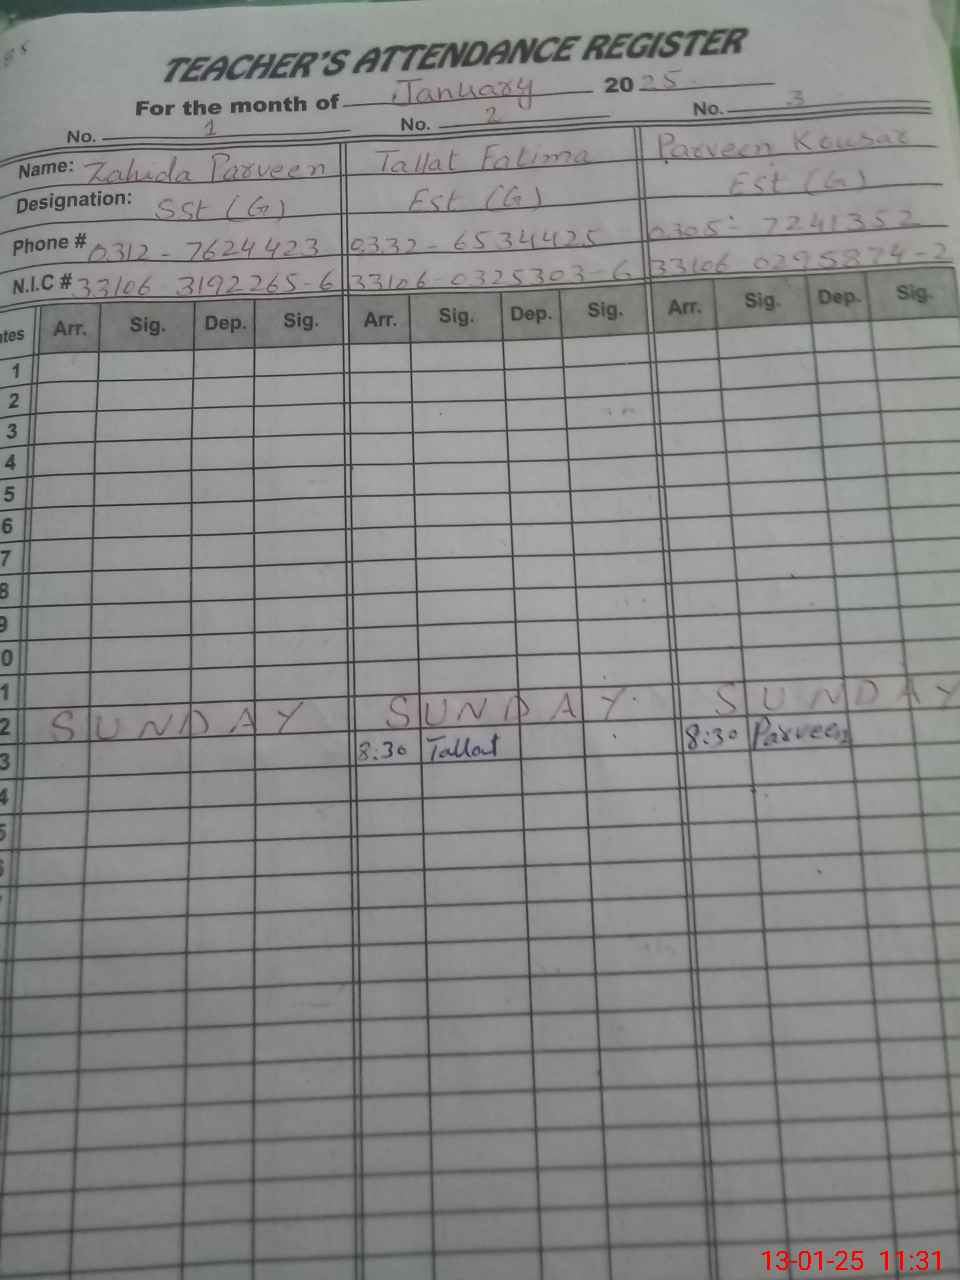 TEACHER'S ATTENDANCE REGISTER
For the month of January 2025
No. 1 No. 2 No. 3
Name: Zahida Parveen Tallat Fatima Parveen Kousar
Designation: SSt (G) Est (G) Est (G)
Phone # 0312 - 7624423 0332 - 6534425 0305 - 7241352
N.I.C # 33106 3192265-6 33106-0325303-6 33106 0295874-2
tes Arr. Sig. Dep. Sig. Arr. Sig. Dep. Sig. Arr. Sig. Dep. Sig.
1
2
3
4
5
6
7
8
9
0
1
2 SUNDAY SUNDAY SUNDAY
3 8:30 Tallat 8:30 Parveen
4
5
13-01-25 11:31